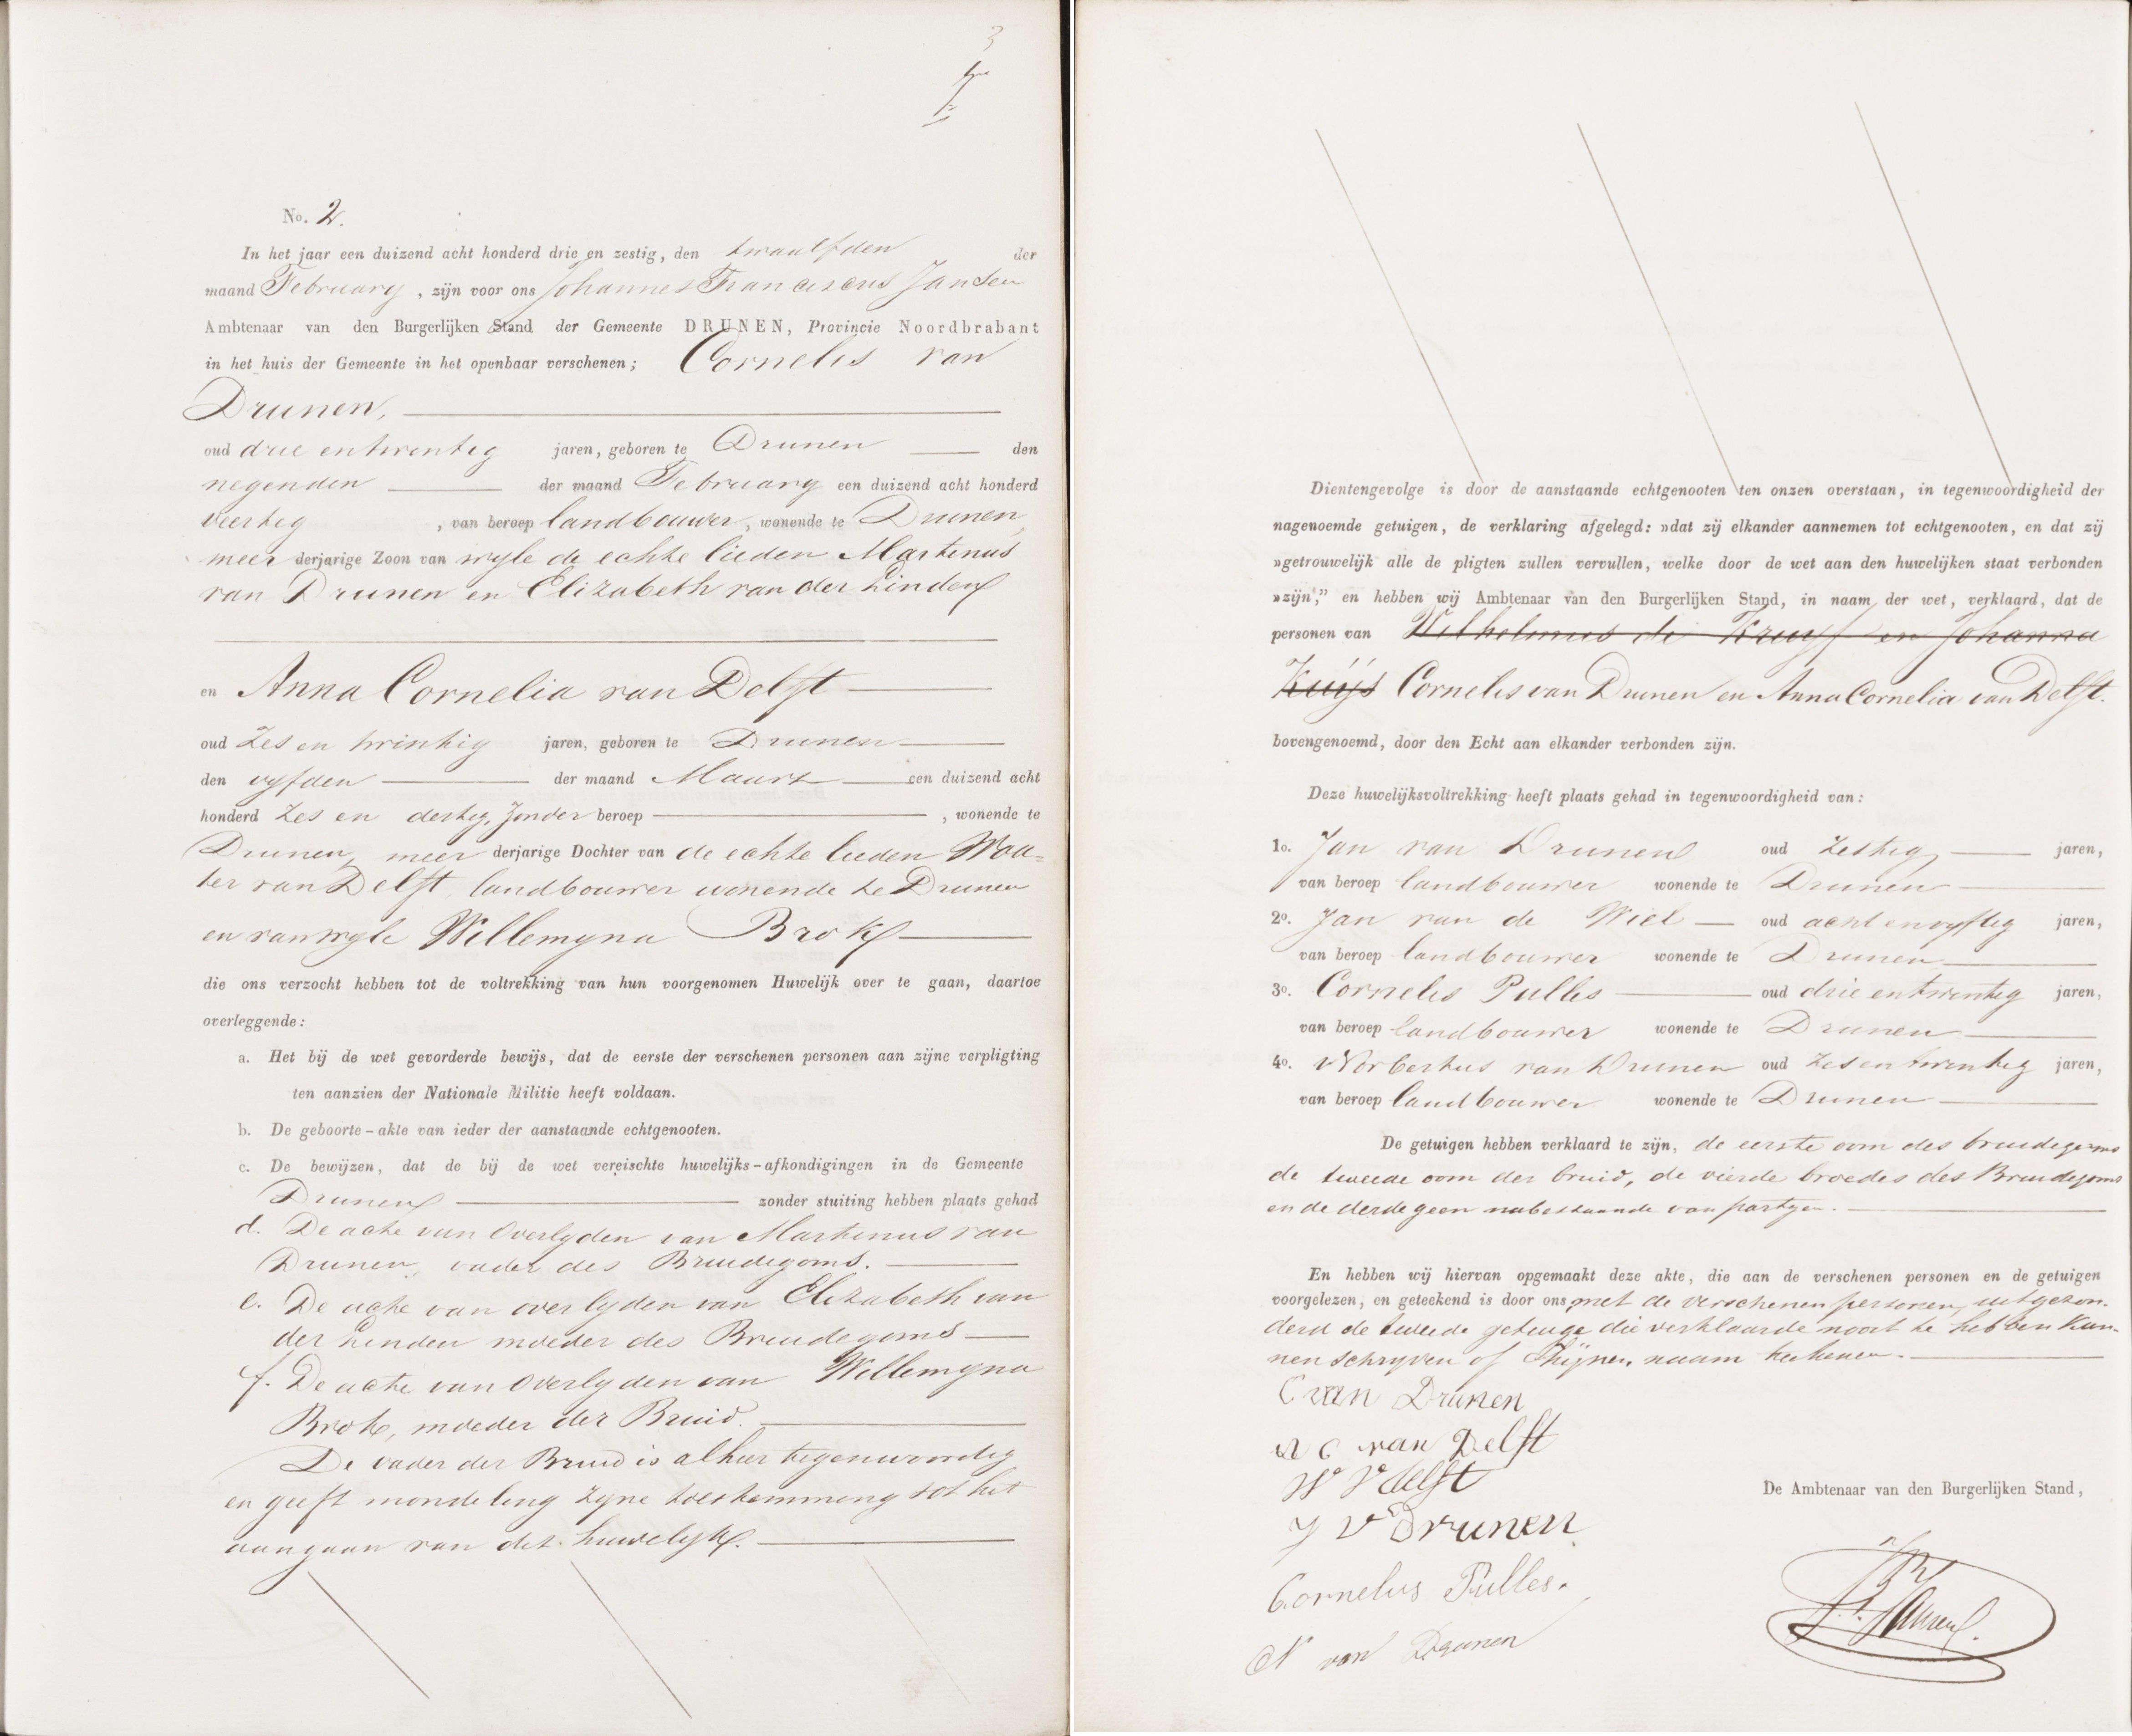 3
No. 2.
In het jaar een duizend acht honderd drie en zestig, den twaalfden der
maand February, zijn voor ons Johannes Franciscus Jansen
Ambtenaar van den Burgerlijken Stand der Gemeente DRUNEN, Provincie Noordbrabant
in het huis der Gemeente in het openbaar verschenen; Cornelis van
Drunen,
oud drie en twintig jaren, geboren te Drunen den
negenden der maand February een duizend acht honderd
veertig, van beroep landbouwer, wonende te Drunen,
meer derjarige Zoon van wyle de echte lieden Martinus
van Drunen en Elizabeth van der Linden
en Anna Cornelia van Delft
oud Zes en twintig jaren, geboren te Drunen
den vyfden der maand Maart een duizend acht
honderd Zes en dertig, Zonder beroep, wonende te
Drunen, meer derjarige Dochter van de echte lieden Wou=
ter van Delft, landbouwer wonende te Drunen
en van wyle Willemyna Brok
die ons verzocht hebben tot de voltrekking van hun voorgenomen Huwelijk over te gaan, daartoe
overleggende:
a. Het bij de wet gevorderde bewijs, dat de eerste der verschenen personen aan zijne verpligting
ten aanzien der Nationale Militie heeft voldaan.
b. De geboorte-akte van ieder der aanstaande echtgenooten.
c. De bewijzen, dat de bij de wet vereischte huwelijks-afkondigingen in de Gemeente
Drunen zonder stuiting hebben plaats gehad
d. De acte van Overlyden van Martinus van
Drunen, vader des Bruidegoms.
e. De acte van overlyden van Elizabeth van
der Linden moeder des Bruidegoms
f. De acte van Overlyden van Willemyna
Brok, moeder der Bruid.
De vader der Bruid is alhier tegenwoordig
en geeft mondeling zyne toestemming tot het
aangaan van dit huwelyk.
Dientengevolge is door de aanstaande echtgenooten ten onzen overstaan, in tegenwoordigheid der
nagenoemde getuigen, de verklaring afgelegd: »dat zij elkander aannemen tot echtgenooten, en dat zij
»getrouwelijk alle de pligten zullen vervullen, welke door de wet aan den huwelijken staat verbonden
»zijn," en hebben wij Ambtenaar van den Burgerlijken Stand, in naam der wet, verklaard, dat de
personen van Wilhelmus de Kruyf en Johanna
Kuijs Cornelis van Drunen en Anna Cornelia van Delft.
bovengenoemd, door den Echt aan elkander verbonden zijn.
Deze huwelijksvoltrekking heeft plaats gehad in tegenwoordigheid van:
1o. Jan van Drunen oud Zestig jaren,
van beroep landbouwer wonende te Drunen
2o. Jan van de Wiel oud acht en vyftig jaren,
van beroep landbouwer wonende te Drunen
3o. Cornelis Pulles oud drie en twintig jaren,
van beroep landbouwer wonende te Drunen
4o. Norbertus van Drunen oud Zes en twintig jaren,
van beroep landbouwer wonende te Drunen
De getuigen hebben verklaard te zijn, de eerste oom des bruidegoms
de tweede oom der bruid, de vierde broeder des Bruidegoms
en de derde geen nabestaande van partyen.
En hebben wij hiervan opgemaakt deze akte, die aan de verschenen personen en de getuigen
voorgelezen, en geteekend is door ons met de verschenen personen, uitgezon-
derd de tweede getuige die verklaarde nooit te hebben kun-
nen schryven of zynen naam teekenen.
C van Drunen
A C van Delft
W v Delft
De Ambtenaar van den Burgerlijken Stand,
J v Drunen
Cornelus Pulles.
J. F. Jansen.
N van Drunen